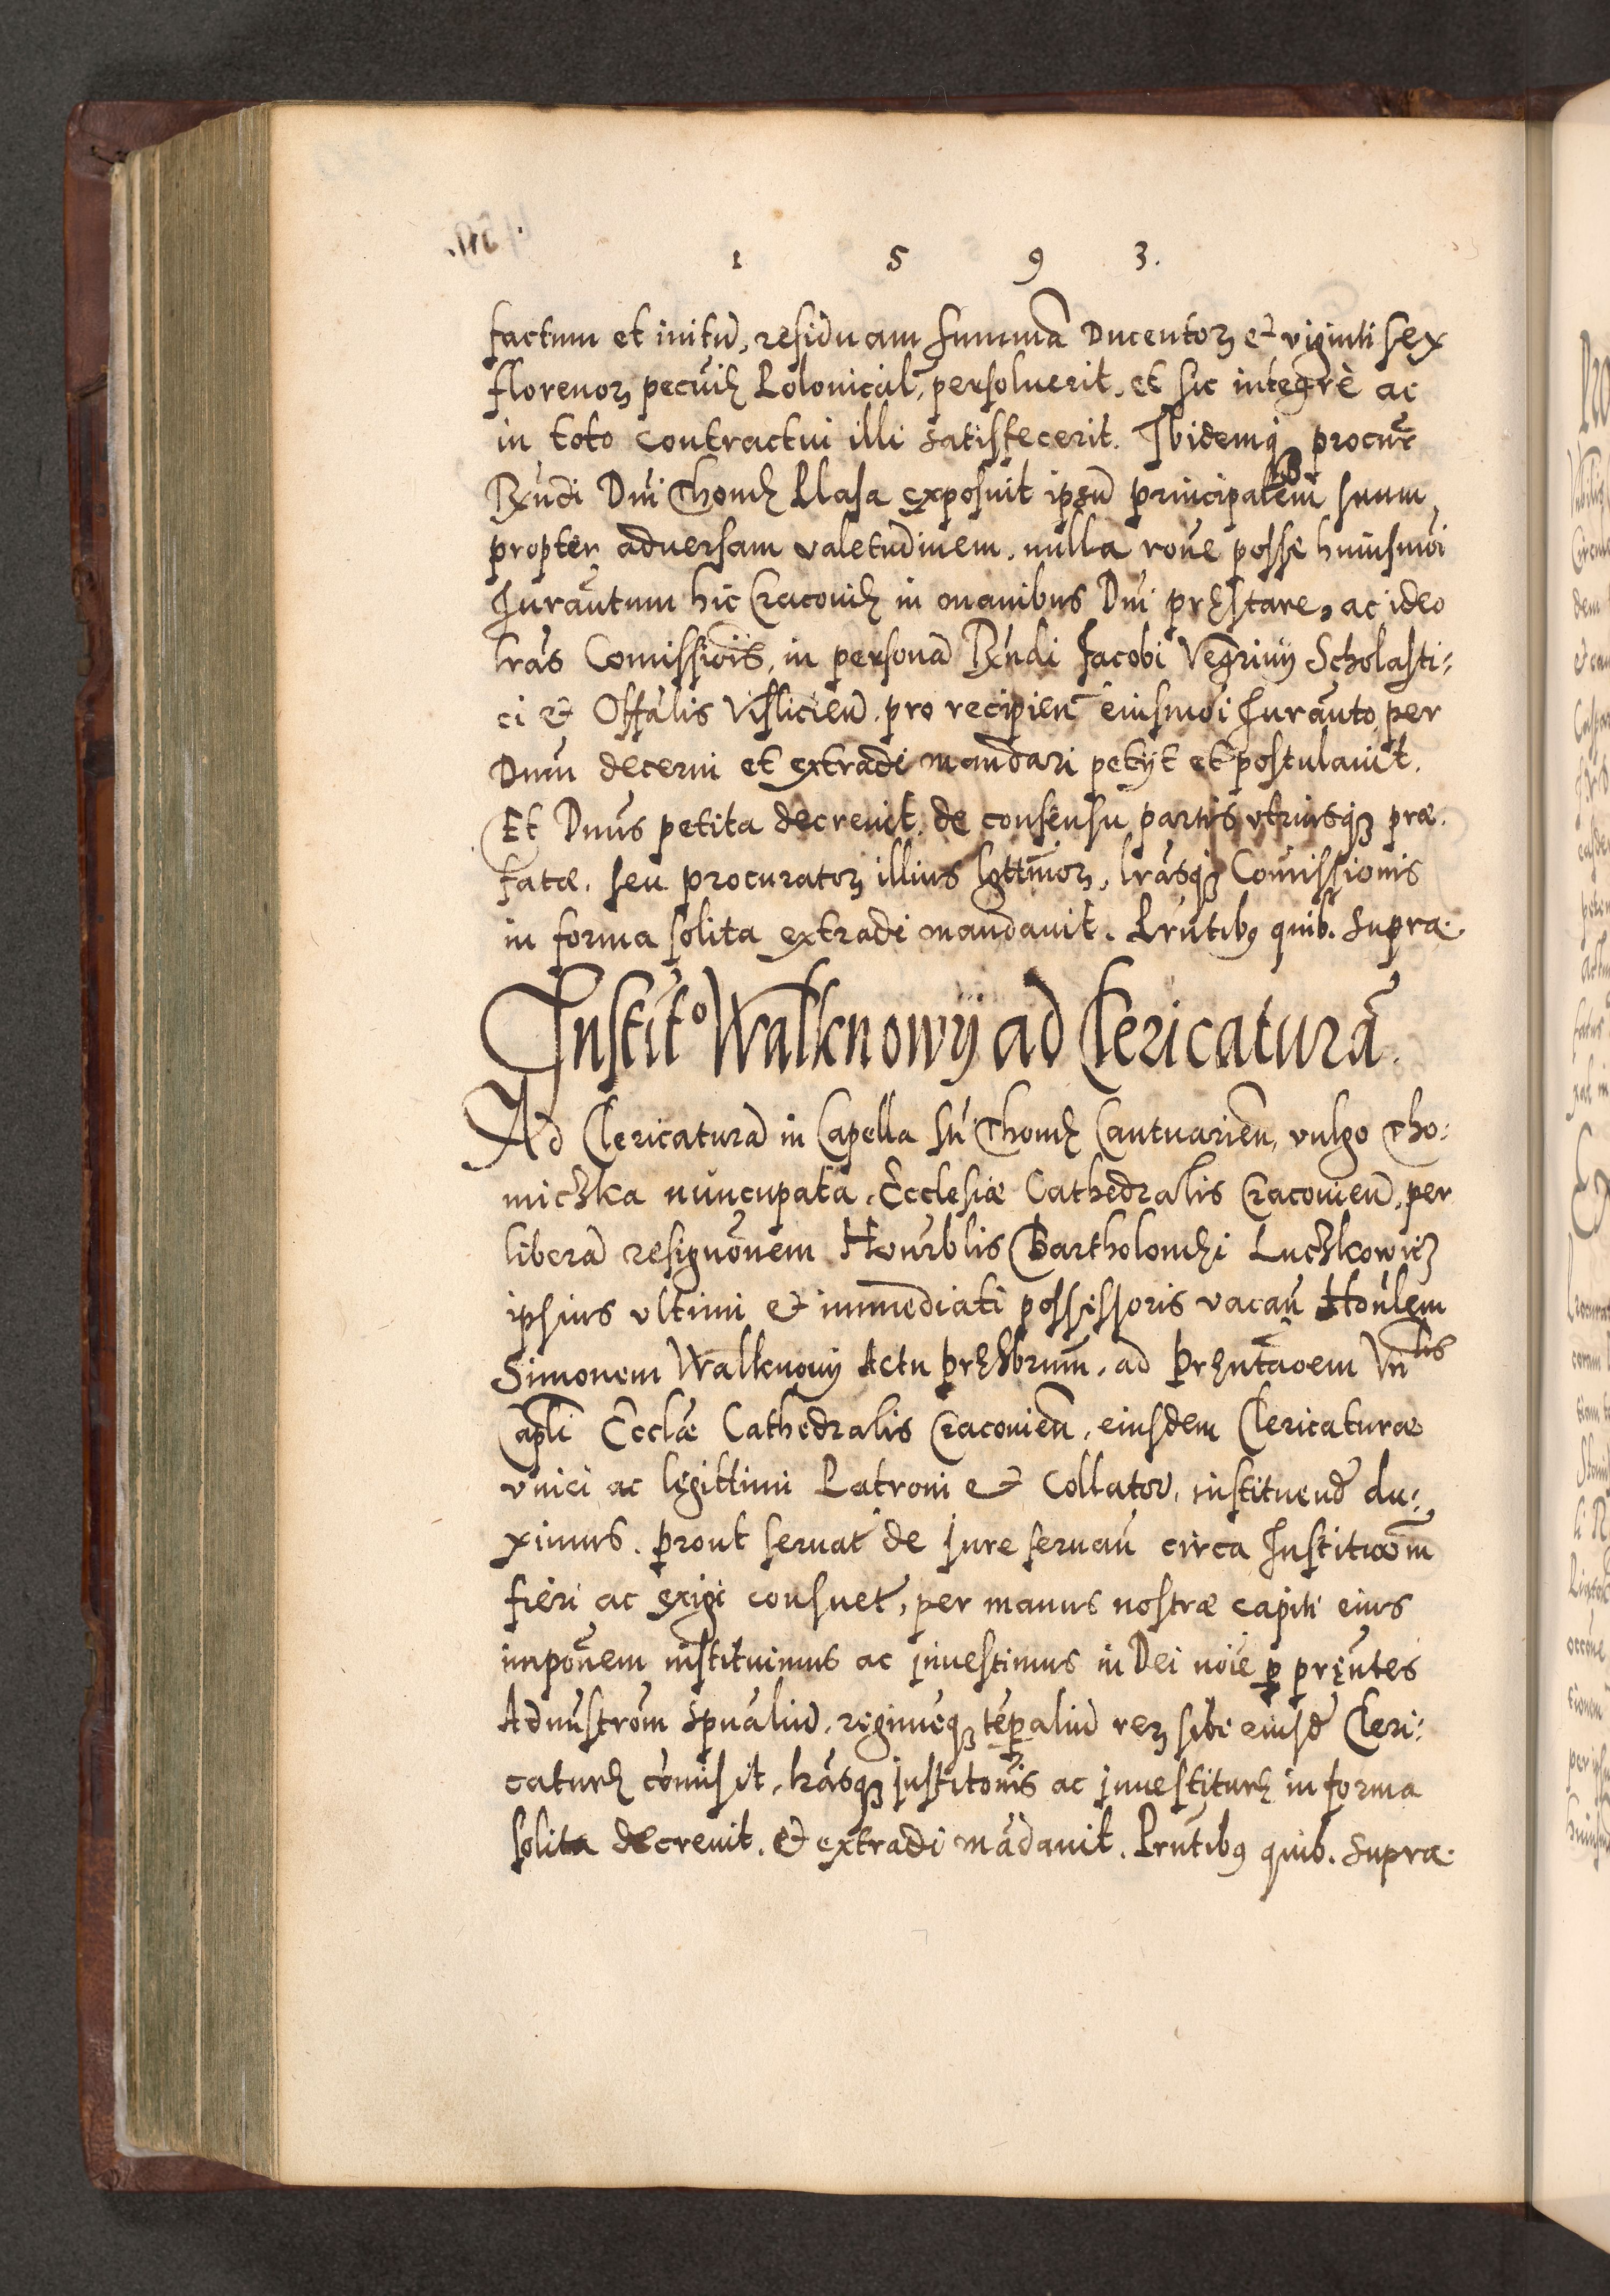 1 5 9 3.
factum et initū, residuam summā Ducentoꝝ et viginti sex
florenoꝝ pecuīę Polonical, persoluerit, et sic integrè ac
in toto contractui illi satisfecerit. Ibidemq procur̄
Rn̄di Dn̄i Thomę Plasa exposuit ipsū principalem suum,
propter aduersam valetudinem, nulla ron̄e posse huiusmōi
Jurān̄tum hic Cracouię in manibus Dn̄i pręstare, ac ideo
lr̄as Com̄issiōis, in personā Rn̄di Jacobi Vegrinij Scholasti:
ci et Offālis Visliciēn. pro recipien̄ eiusmōi Jurān̄to, per
Dnm̄ decerni et extradi mandari petijt et postulauit.
Et Dn̄us petita decreuit, de consensu partis vtriusqꝫ præ.
fatæ. seu procuratoꝝ illius lgttīmoꝝ, lr̄asqꝫ Com̄issionis
in forma solita extradi mandauit. Prn̄tibꝰ quib. supra.
Institō Walknowij ad Clericaturā.
Ad Clericaturā in Capella Sti Thomę Cantuariēn, vulgo Tho:
miczka nuncupata, Ecclesiæ Cathedralis Cracouiēn, per
liberā resignōnem Honr̄blis Bartholomęi Luczkowicz
ipsius vltimi et immediati possessoris vacan̄ Hon̄lem
Simonem Walknowij Actu pręsbrum̄, ad pręn̄tāoem Vnlis
Capli Ecclæ Cathedralis Cracouiēn, eiusdem Clericaturæ
vnici ac legittimi Patroni et Collator, instituend̄ du:
ximus. prout seruat̄ de jure seruan̄ circa Instituōm̄
fieri ac exigi consuet̄, per manus nostræ capiti eius
impōnem instituimus ac jnuestimus in Dei nōie ꝑ pręn̄tes
Admn̄strōm spūaliū, regimēqꝫ tēꝑaliū reꝝ sibi eiusd̄ Cleri:
caturę cōmisit, lr̄asqꝫ justitōnis ac jnuestiturę in forma
solita decreuit, et extradi mādauit. Prn̄tibꝰ quib. supra.